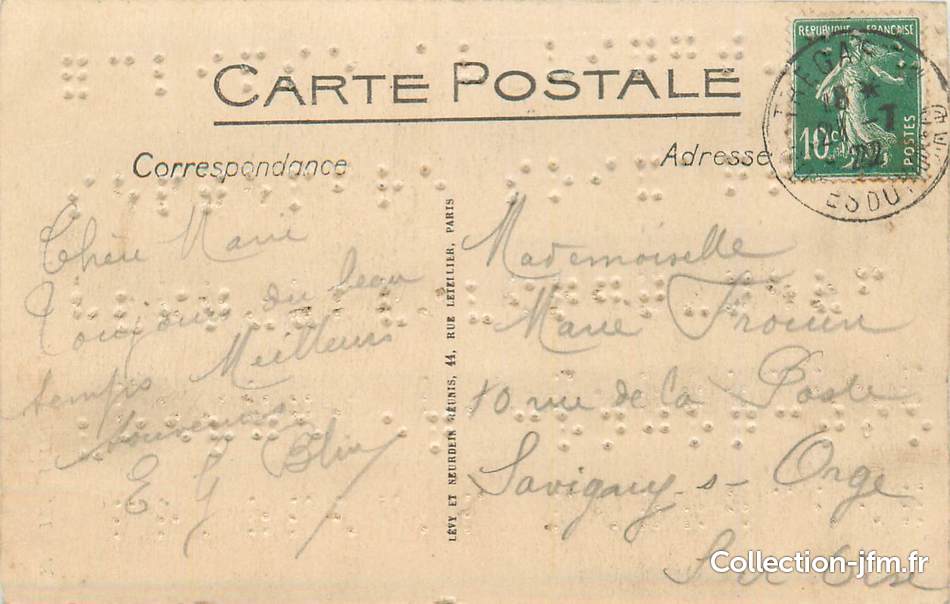 CARTE POSTALE
REPUBLIQUE FRANCAISE
10c
POSTES
18 *
-7
22
Correspondance
Adresse
Chère Marie
Toujours du beau
temps Meilleurs
souvenirs
E G Blin
LÉVY ET NEURDEIN RÉUNIS, 44, RUE LETELLIER, PARIS
Mademoiselle
Marie Frouin
10 rue de la Poste
Savigny-s-Orge
Collection-jfm.fr